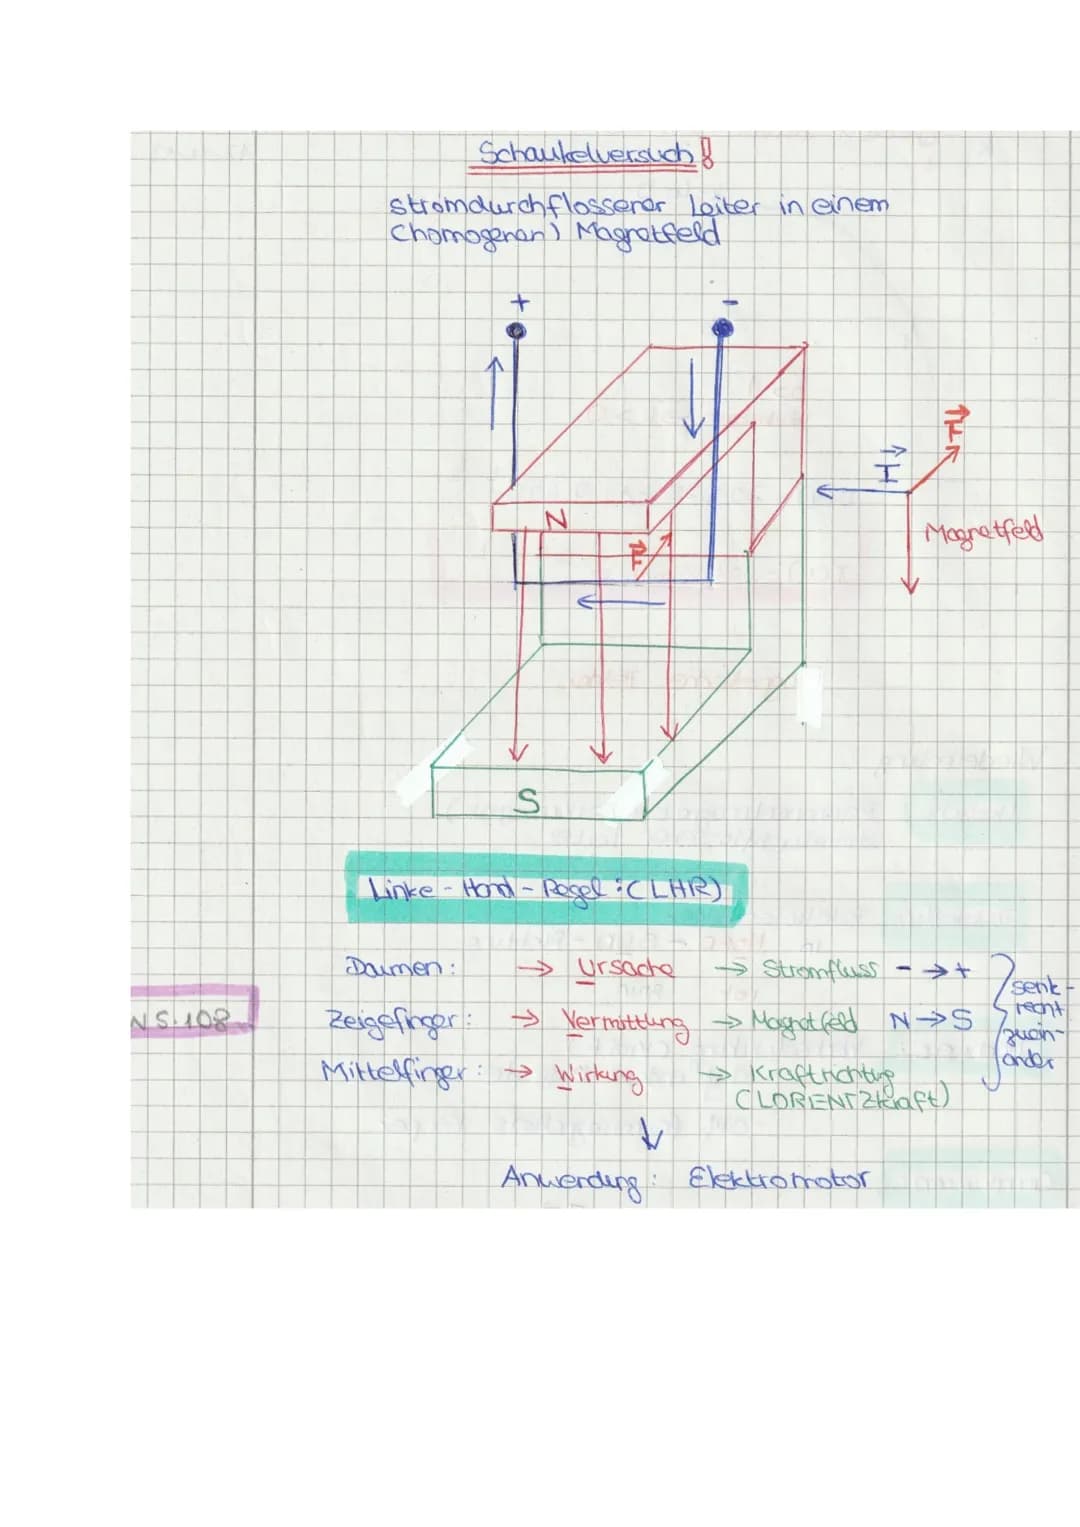 Schaukelversuch!
stromdurchflossener Leiter in einem
(homogenen) Magnetfeld
+ -
F
I
N
F
Magnetfeld
S
Linke-Hand-Regel:(LHR)
Daumen: → Ursache → Stromfluss - → +
Zeigefinger: → Vermittlung → Magnetfeld N→S
Mittelfinger: → Wirkung → Kraftrichtung
(LORENTZkraft)
senk-
recht
zuein-
ander
NS.108
↓
Anwendung: Elektromotor